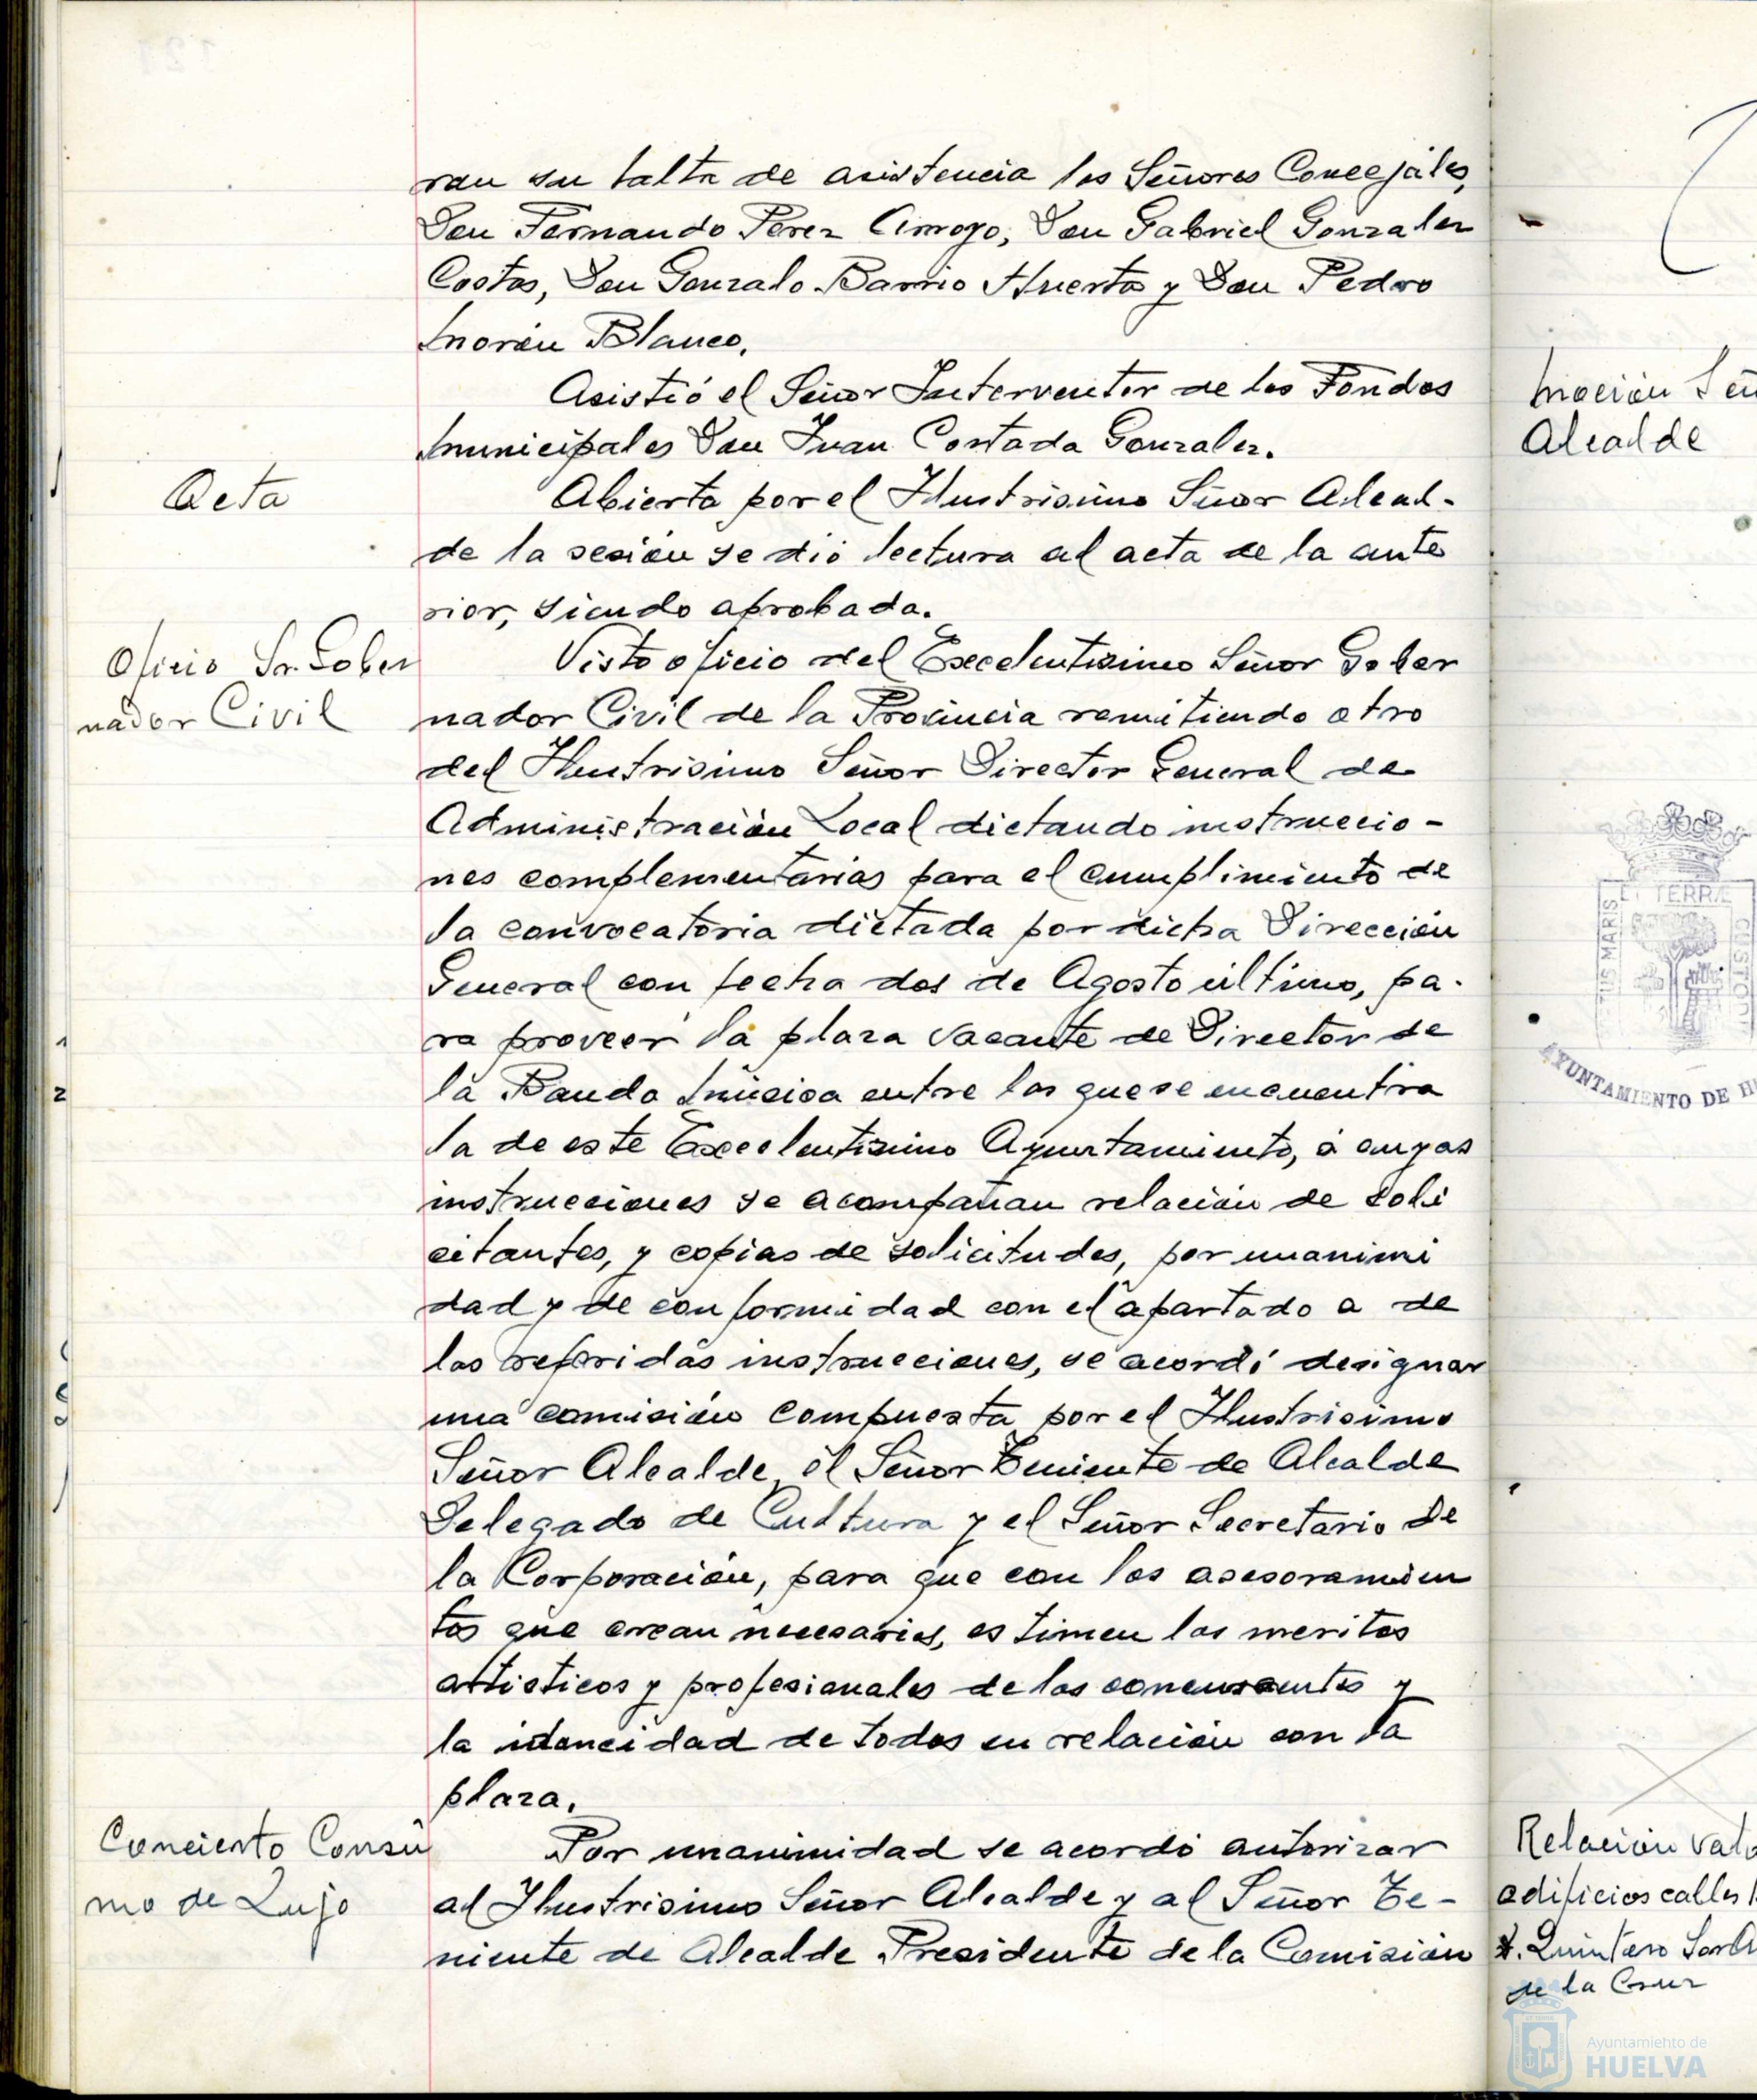 ran su falta de asistencia los Señores Concejales,
Don Fernando Perez Arroyo, Don Gabriel Gonzalez
Costas, Don Gonzalo Barrio Huerta y Don Pedro
Morón Blanco.
Asistió el Señor Interventor de los Fondos
Municipales Don Juan Contada Gonzalez.
Acta
Abierta por el Ilustrisimo Señor Alcal-
de la sesión se dió lectura al acta de la ante
rior, siendo aprobada.
Oficio Sr. Gober
nador Civil
Visto oficio del Excelentisimo Señor Gober
nador Civil de la Provincia remitiendo otro
del Ilustrisimo Señor Director General de
Administración Local dictando instruccio-
nes complementarias para el cumplimiento de
la convocatoria dictada por dicha Dirección
General con fecha dos de Agosto último, pa-
ra proveer la plaza vacante de Director de
la Banda Música entre las que se encuentra
la de este Excelentisimo Ayuntamiento, á cuyas
instrucciones se acompañan relación de soli
citantes, y copias de solicitudes, por unanimi
dad y de conformidad con el apartado a de
las referidas instrucciones, se acordó designar
una comisión compuesta por el Ilustrisimo
Señor Alcalde, el Señor Teniente de Alcalde
Delegado de Cultura y el Señor Secretario de
la Corporación, para que con los asesoramien
tos que crean necesarios, estimen los meritos
artisticos y profesionales de los concursantes y
la idoneidad de todos en relación con la
plaza.
Concierto Consu
mo de Lujo
Por unanimidad se acordó autorizar
al Ilustrisimo Señor Alcalde y al Señor Te-
niente de Alcalde Presidente de la Comisión
Moción Señ
Alcalde
ET TERRÆ
CUSTODI
TUS MARIS
AYUNTAMIENTO DE H
Relación valo
edificios calles
Quintero
de la Cruz
Ayuntamiento de
HUELVA